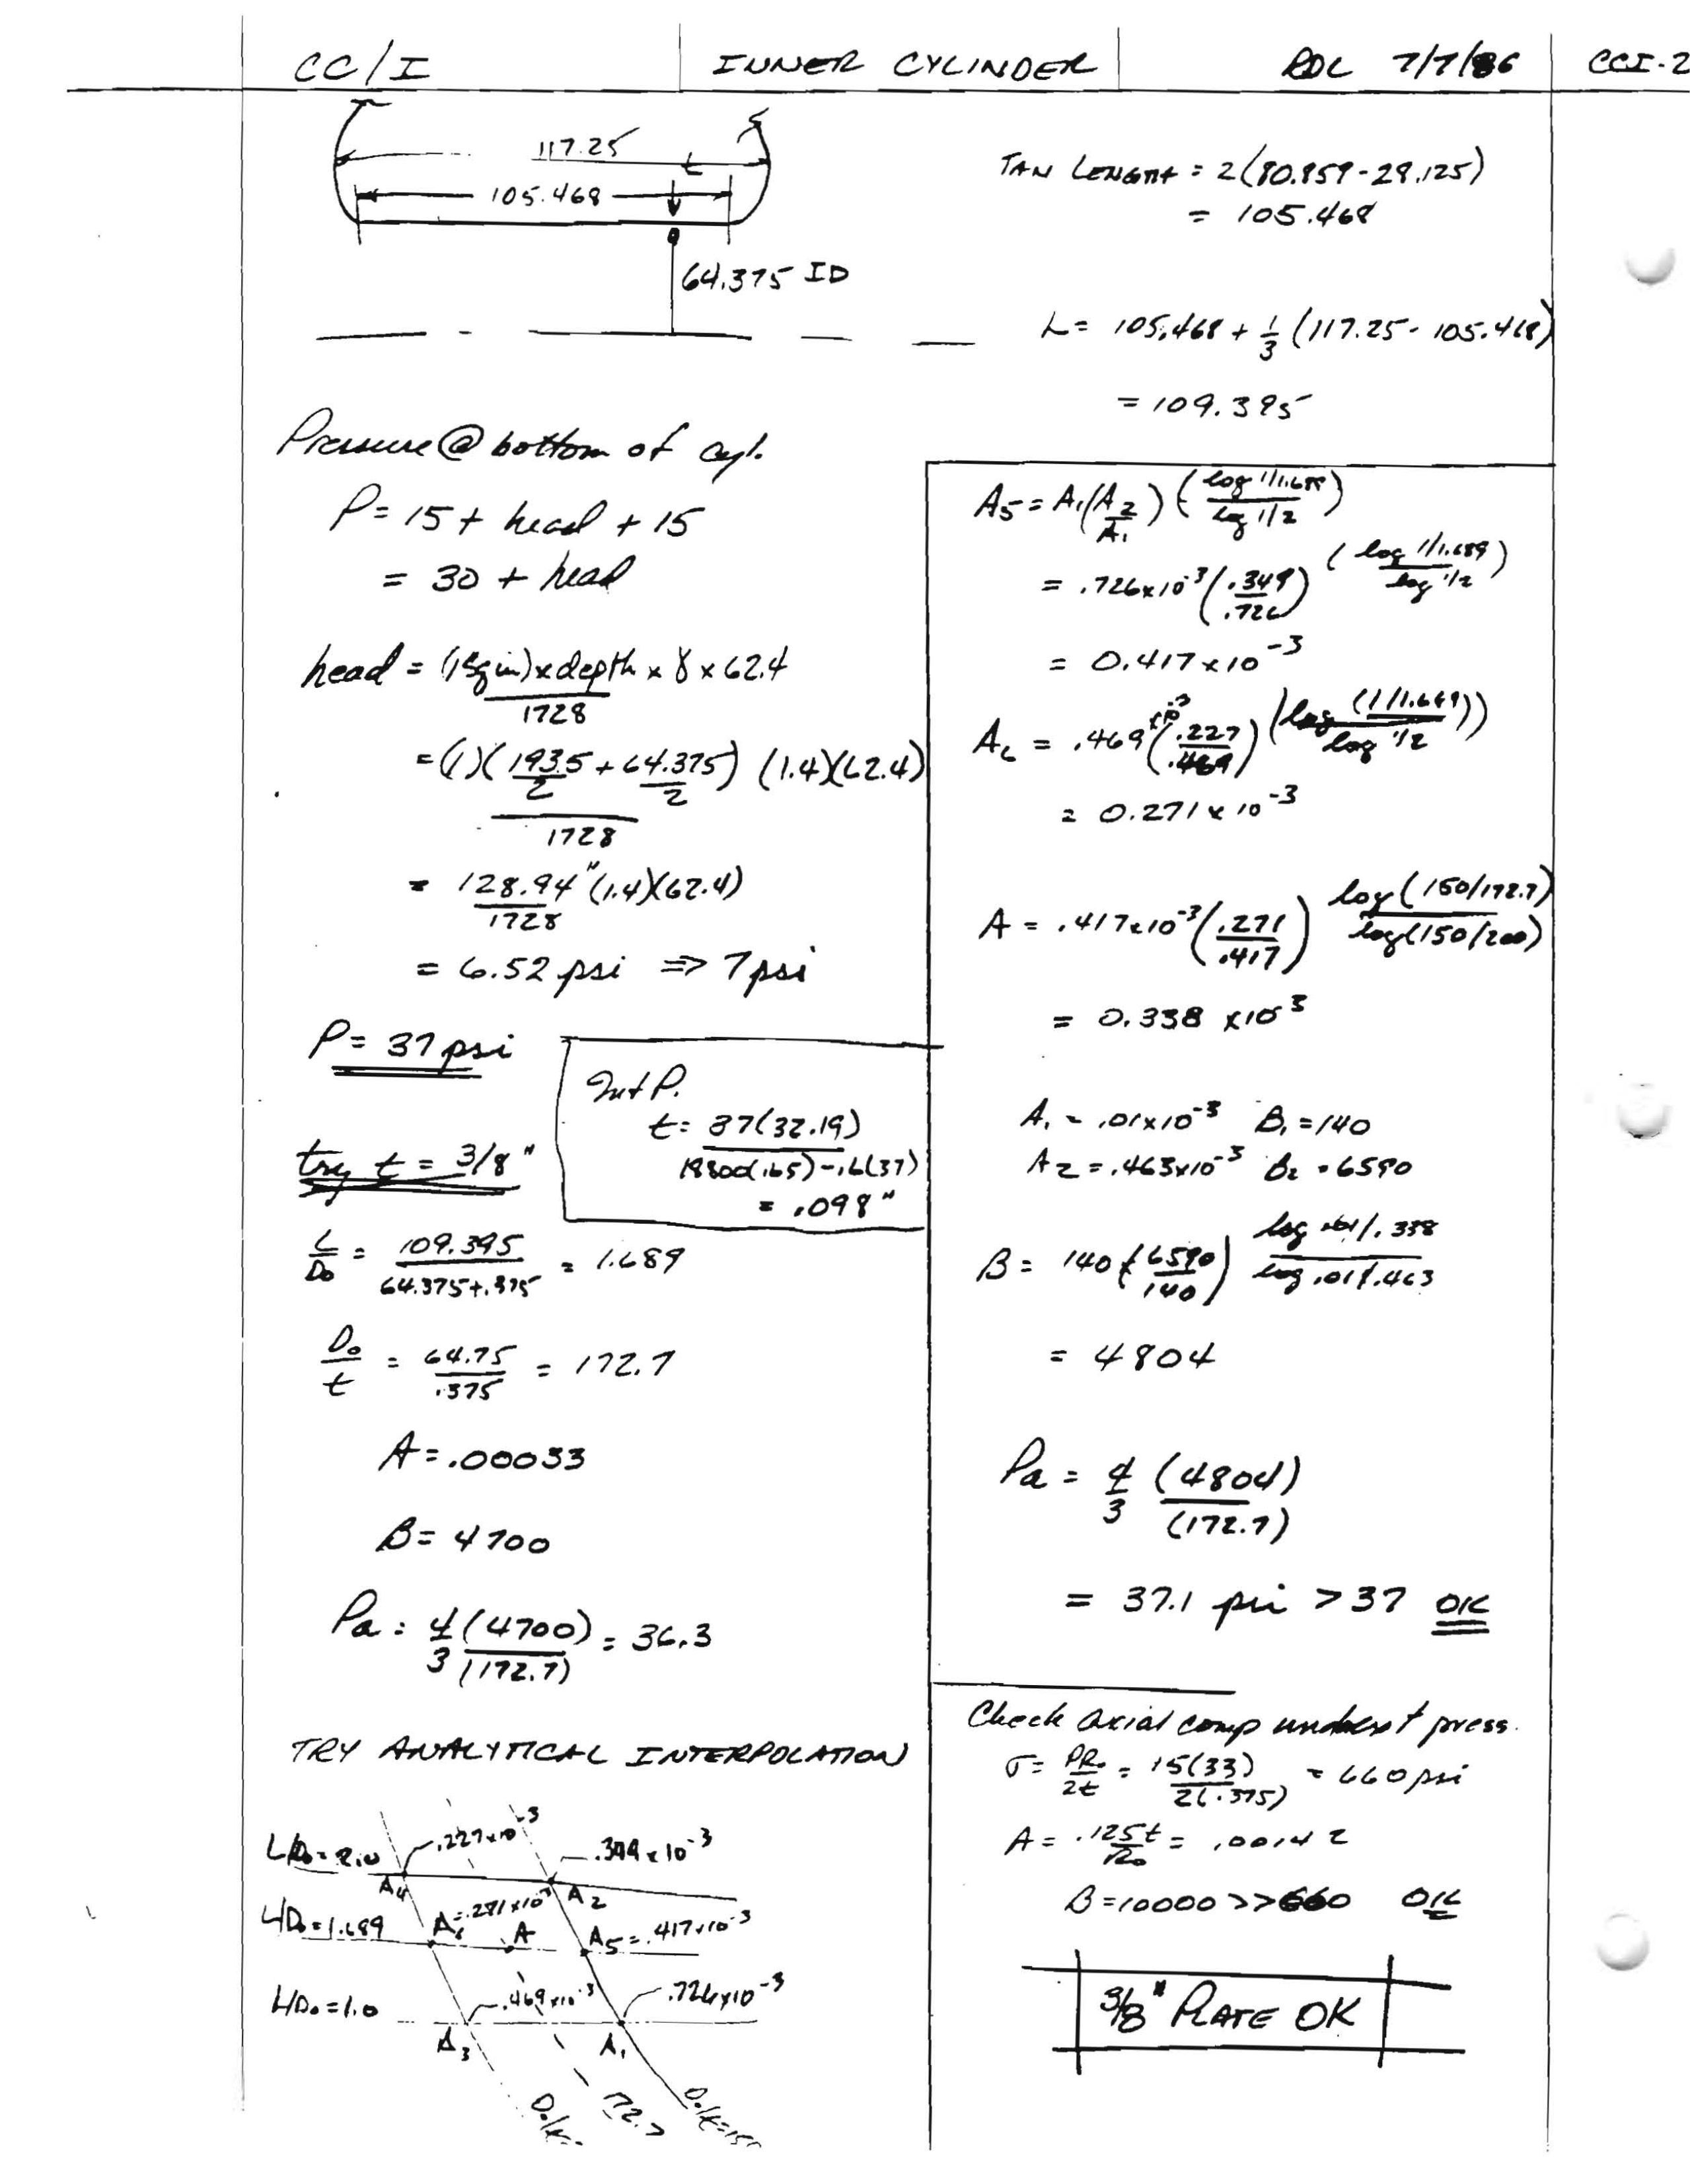 CC/I INNER CYLINDER RDL 7/7/86 CCI-2
117.25
t
105.468
64.375 ID
TAN LENGTH = 2(80.859-28.125)
= 105.468
L = 105.468 + 1/3 (117.25 - 105.468)
= 109.395
Pressure @ bottom of cyl.
P = 15 + head + 15
= 30 + head
head = (1 sq in) x depth x γ x 62.4 / 1728
= (1)(193.5/2 + 64.375/2) (1.4)(62.4) / 1728
= 128.94" (1.4)(62.4) / 1728
= 6.52 psi => 7 psi
P = 37 psi
Int P.
t = 37(32.19) / 18800(.65)-.6(37)
= .098"
try t = 3/8"
L/Do = 109.395 / 64.375+.375 = 1.689
Do/t = 64.75/.375 = 172.7
A = .00033
B = 4700
Pa = 4/3 (4700)/(172.7) = 36.3
TRY ANALYTICAL INTERPOLATION
.227x10-3
L/Do = 2.0 .349 x 10-3
A4 A2
L/Do = 1.689 A6 = .271x10-3 A A5 = .417x10-3
L/Do = 1.0 .469x10-3 .726x10-3
A3 A1
172.7
A5 = A1 (A2/A1) (log 1/1.689 / log 1/2)
= .726x10-3 (.349/.726) (log 1/1.689 / log 1/2)
= 0.417 x 10-3
A6 = .469 x10-3 (.227/.469) (log (1/1.689) / log 1/2)
= 0.271 x 10-3
A = .417x10-3 (.271/.417) log(150/172.7) / log(150/200)
= 0.338 x10-3
A1 = .01x10-3 B1 = 140
A2 = .463x10-3 B2 = 6590
B = 140 (6590/140) log .01/.338 / log .01/.463
= 4804
Pa = 4/3 (4804)/(172.7)
= 37.1 psi > 37 OK
Check axial comp under ext press.
σ = PRo/2t = 15(33)/2(.375) = 660 psi
A = .125t/Ro = .00142
B = 10000 >> 660 OK
3/8" PLATE OK